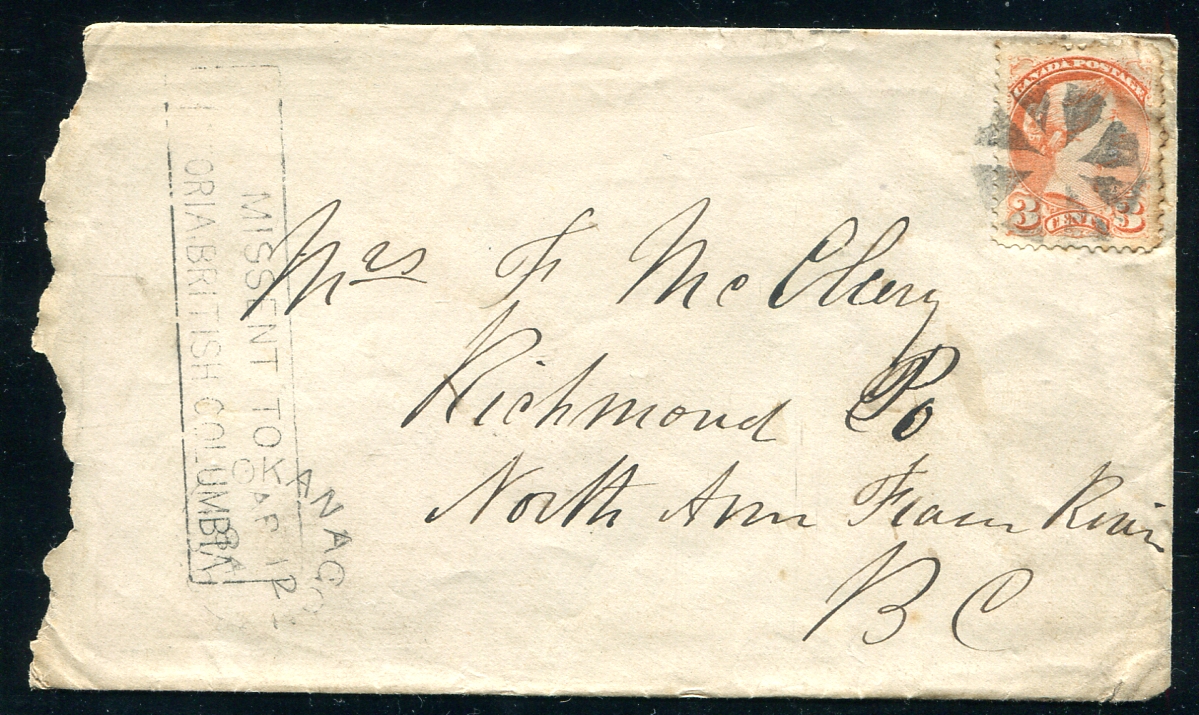 CANADA POSTAGE
3 CENTS 3
MISSENT TO
ORIA BRITISH COLUMBIA
OKANAG
AP 12
Mrs F McCleery
Richmond Po
North Arm Fraser River
B C